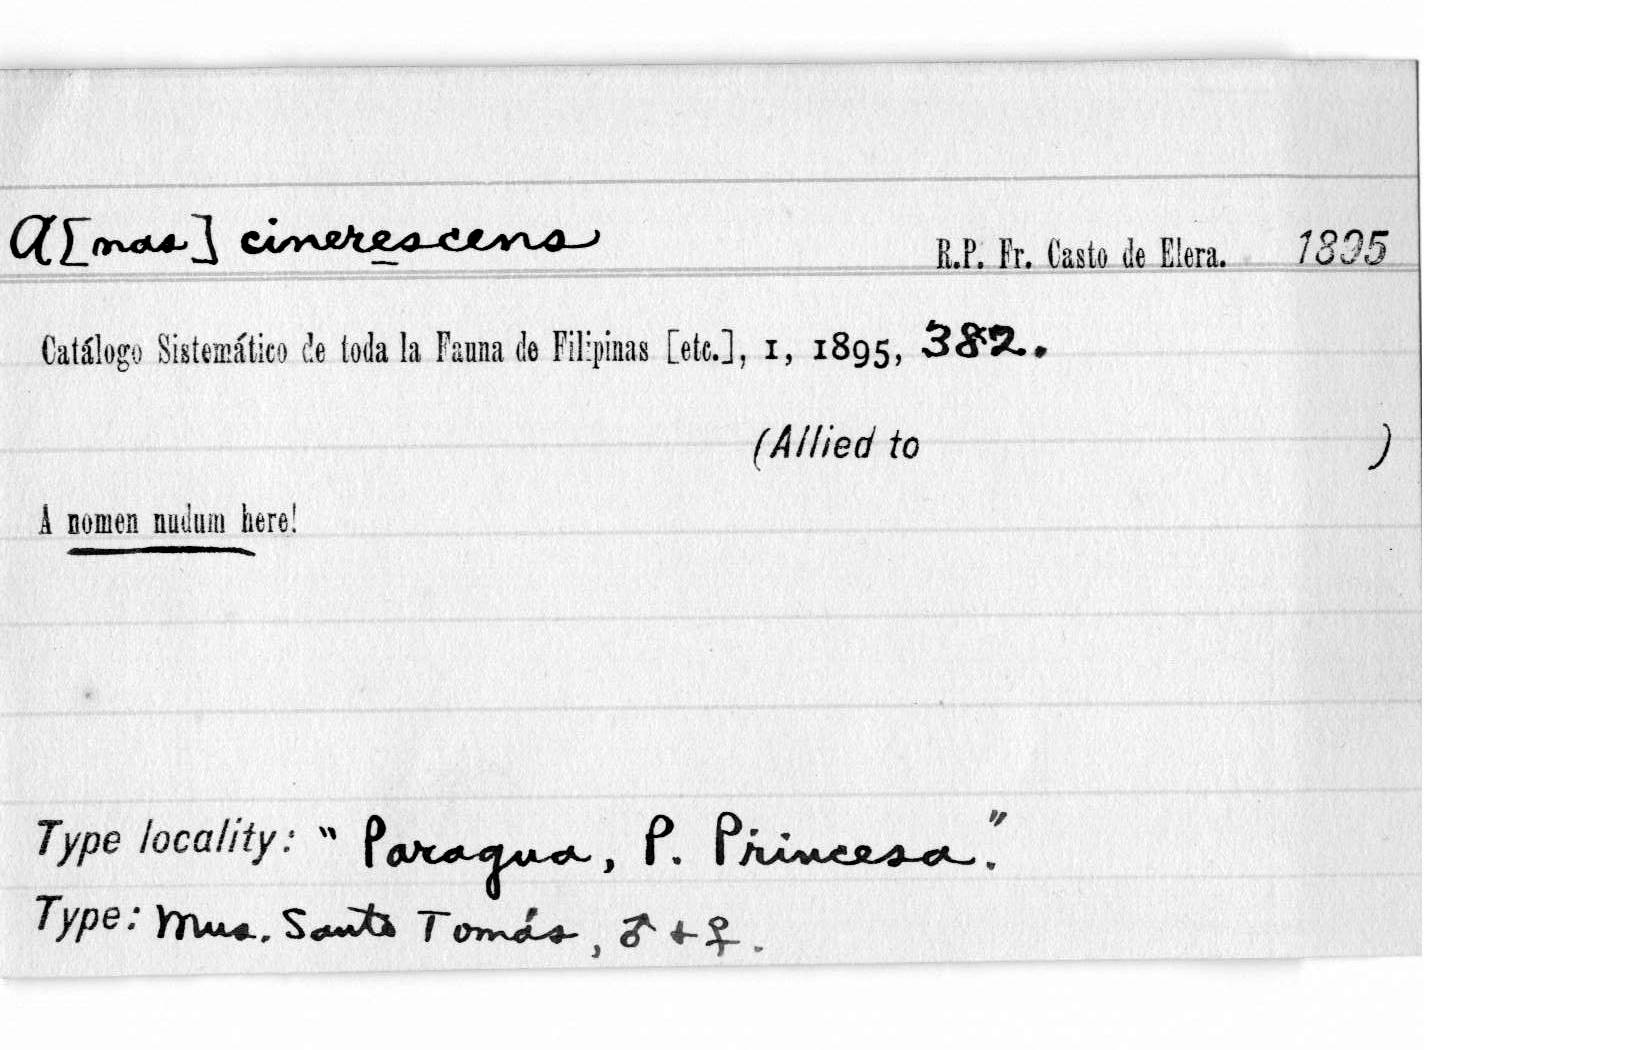 A[nas] cinerescens R.P. Fr. Casto de Elera. 1895
Catálogo Sistemático de toda la Fauna de Filipinas [etc.], 1, 1895, 382.
(Allied to )
A nomen nudum here!
Type locality: "Paragua, P. Princesa."
Type: Mus. Santo Tomás, ♂ + ♀.